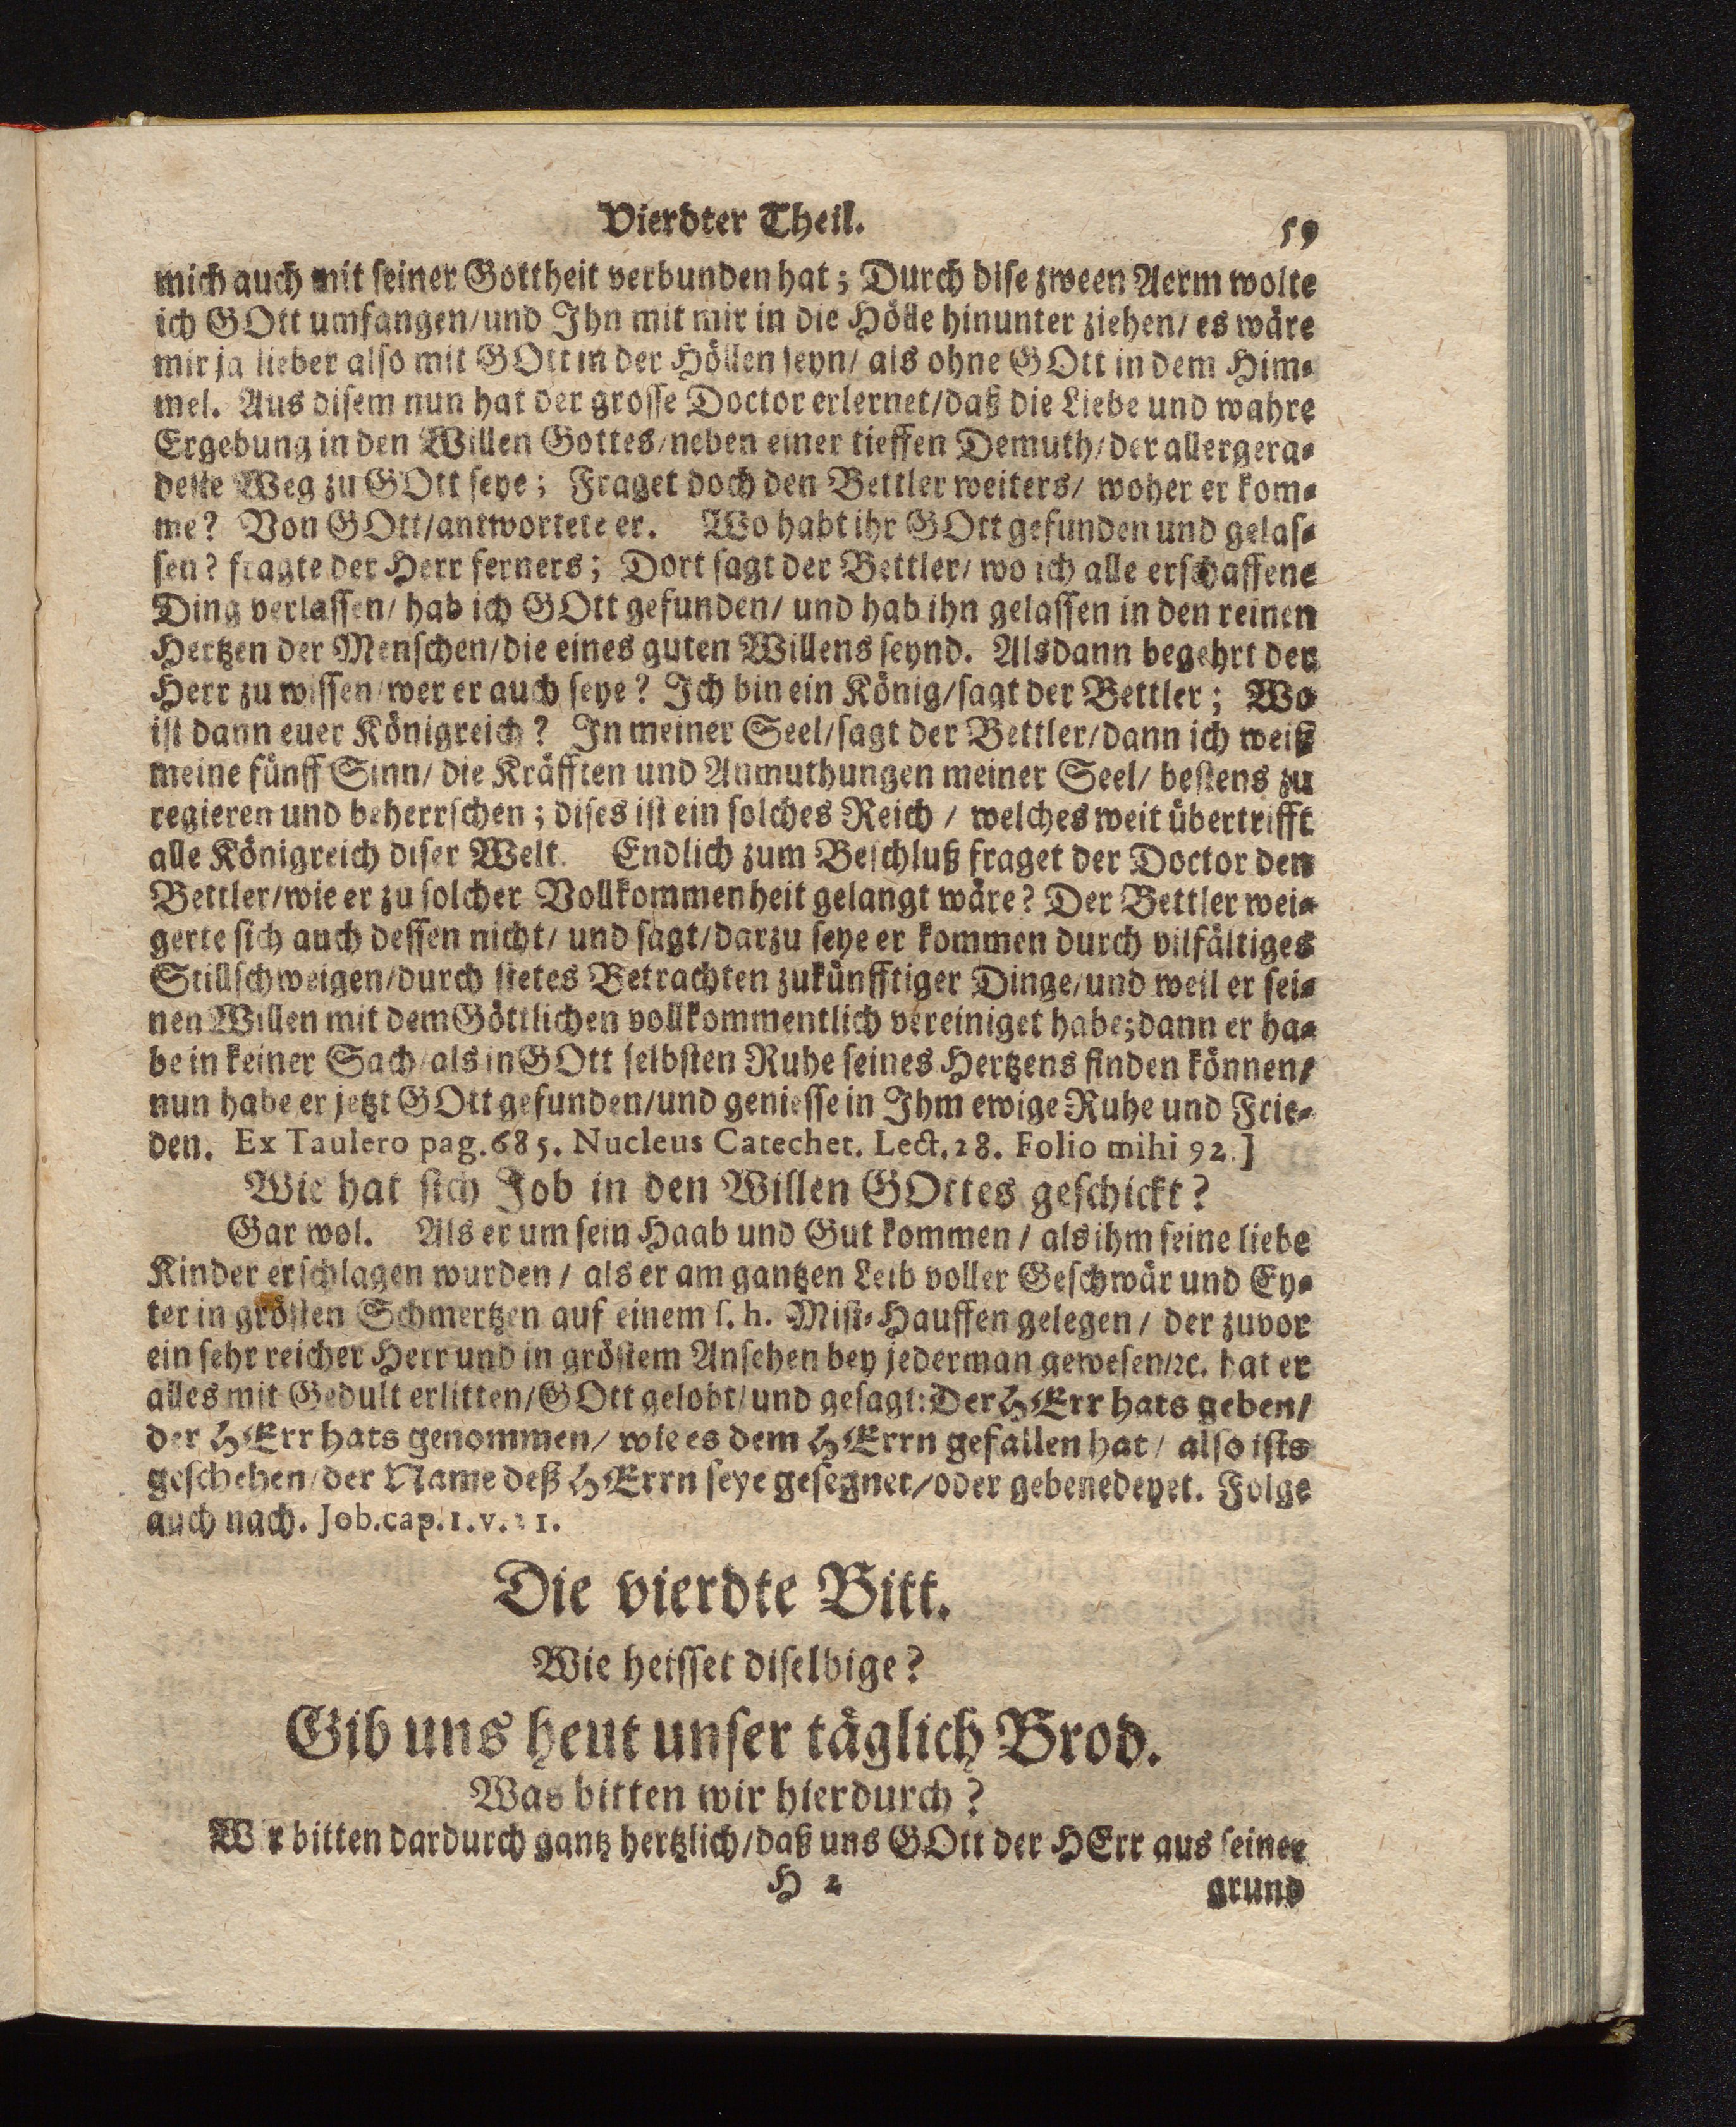 Vierdter Theil. 59
mich auch mit seiner Gottheit verbunden hat; Durch dise zween Aerm wolte
ich GOtt umfangen/und Ihn mit mir in die Hölle hinunter ziehen/ es wäre
mir ja lieber also mit GOtt in der Höllen seyn/ als ohne GOtt in dem Him-
mel. Aus disem nun hat der grosse Doctor erlernet/daß die Liebe und wahre
Ergebung in den Willen Gottes/neben einer tieffen Demuth/der allergera-
deste Weg zu GOtt seye; Fraget doch den Bettler weiters/ woher er kom-
me? Von GOtt/antwortete er. Wo habt ihr GOtt gefunden und gelas-
sen? fragte der Herr ferners; Dort sagt der Bettler/ wo ich alle erschaffene
Ding verlassen/ hab ich GOtt gefunden/ und hab ihn gelassen in den reinen
Hertzen der Menschen/die eines guten Willens seynd. Alsdann begehrt der
Herr zu wissen/wer er auch seye? Ich bin ein König/sagt der Bettler; Wo
ist dann euer Königreich? In meiner Seel/sagt der Bettler/dann ich weiß
meine fünff Sinn/ die Kräfften und Anmuthungen meiner Seel/ bestens zu
regieren und beherrschen; dises ist ein solches Reich / welches weit übertrifft
alle Königreich diser Welt. Endlich zum Beschluß fraget der Doctor den
Bettler/wie er zu solcher Vollkommenheit gelangt wäre? Der Bettler wei-
gerte sich auch dessen nicht/ und sagt/darzu seye er kommen durch vilfältiges
Stillschweigen/durch stetes Betrachten zukünfftiger Dinge/und weil er sei-
nen Willen mit dem Göttlichen vollkommentlich vereiniget habe;dann er ha-
be in keiner Sach/als in GOtt selbsten Ruhe seines Hertzens finden können/
nun habe er jetzt GOtt gefunden/und geniesse in Ihm ewige Ruhe und Frie-
den. Ex Taulero pag.685. Nucleus Catechet. Lect.28. Folio mihi 92.]
Wie hat sich Job in den Willen GOttes geschickt?
Gar wol. Als er um sein Haab und Gut kommen / als ihm seine liebe
Kinder erschlagen wurden / als er am gantzen Leib voller Geschwär und Ey-
ter in grösten Schmertzen auf einem s. h. Mist-Hauffen gelegen / der zuvor
ein sehr reicher Herr und in gröstem Ansehen bey jederman gewesen/ꝛc. hat er
alles mit Gedult erlitten/GOtt gelobt/und gesagt:Der HErr hats geben/
der HErr hats genommen/ wie es dem HErrn gefallen hat/ also ists
geschehen/der Name deß HErrn seye gesegnet/oder gebenedeyet. Folge
auch nach. Job.cap.1.v.21.
Die vierdte Bitt.
Wie heisset diselbige?
Gib uns heut unser täglich Brod.
Was bitten wir hierdurch?
Wir bitten dardurch gantz hertzlich/daß uns GOtt der HErr aus seiner
H 2 grund